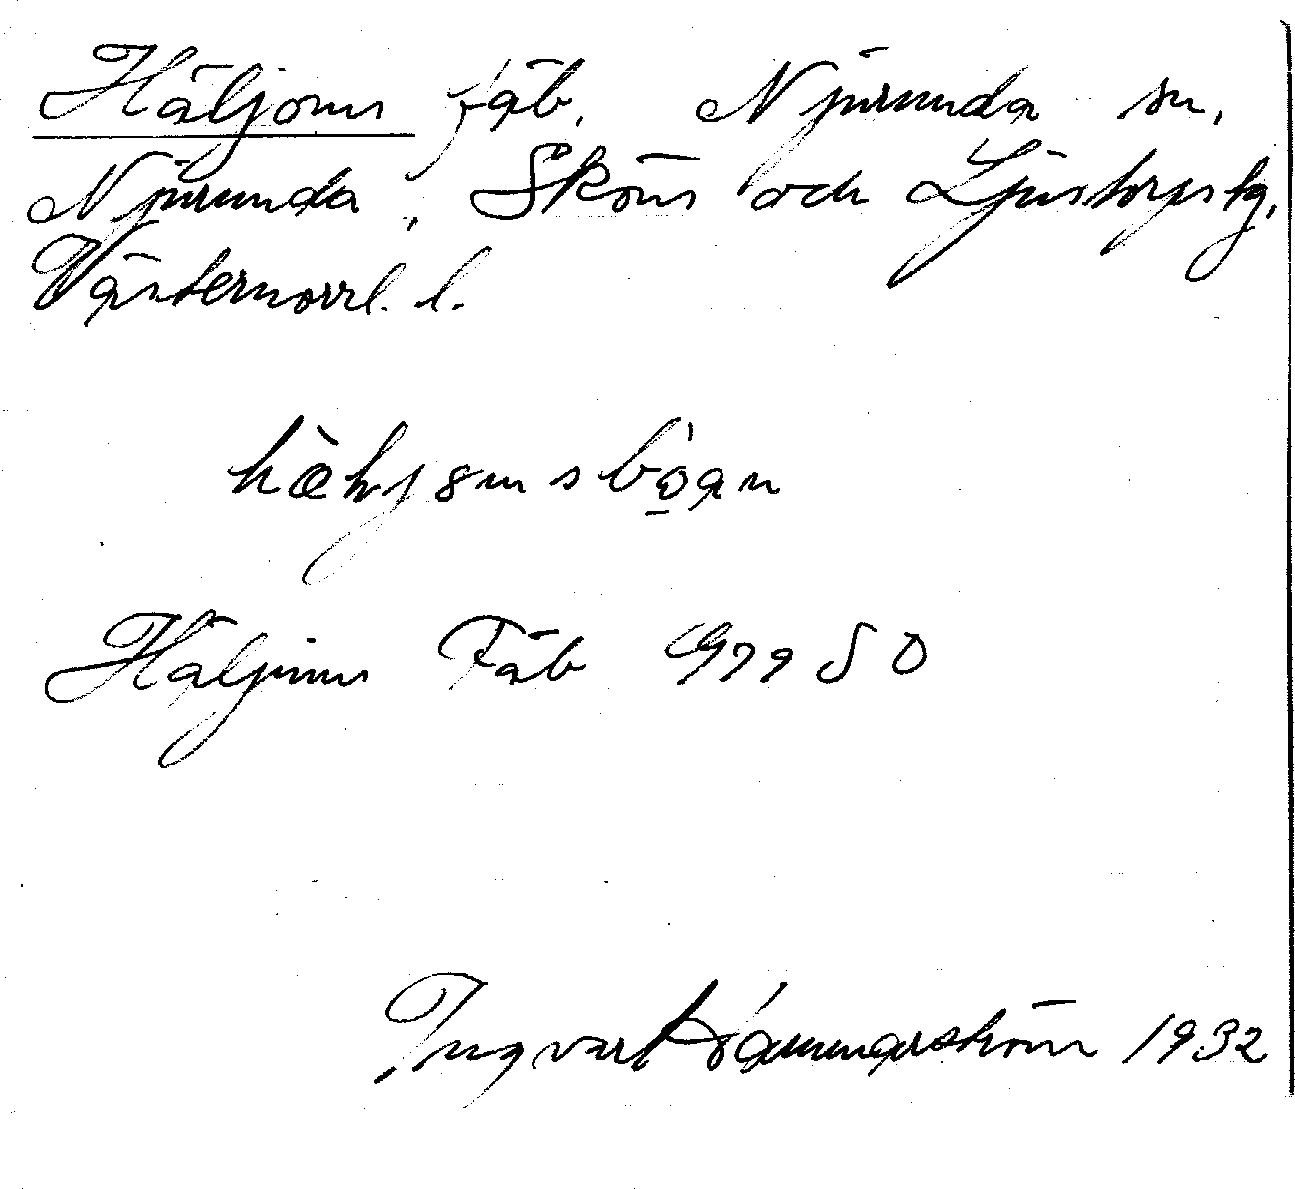 Häljoms fäb. Njurunda sn,
Njurunda, Sköns och Ljustorps tg,
Västernorrl. l.
Häljums Fäb G79 SO
Ingvart Hammarström 1932